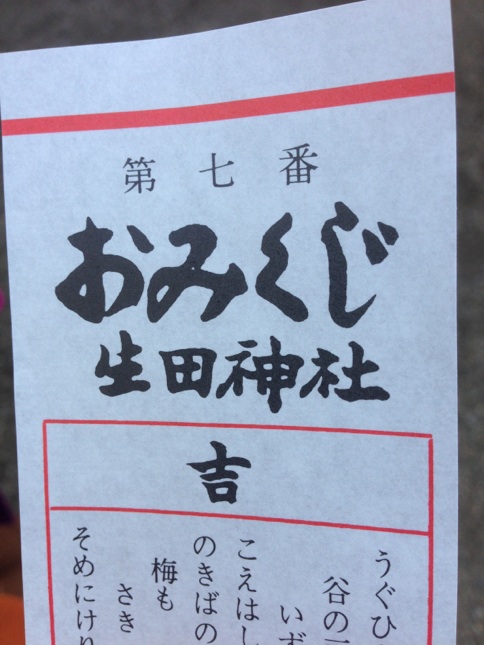 第七番
おみくじ
生田神社
吉
うぐひ
谷の
いず
こえはし
のきばの
梅も
さき
そめにけり